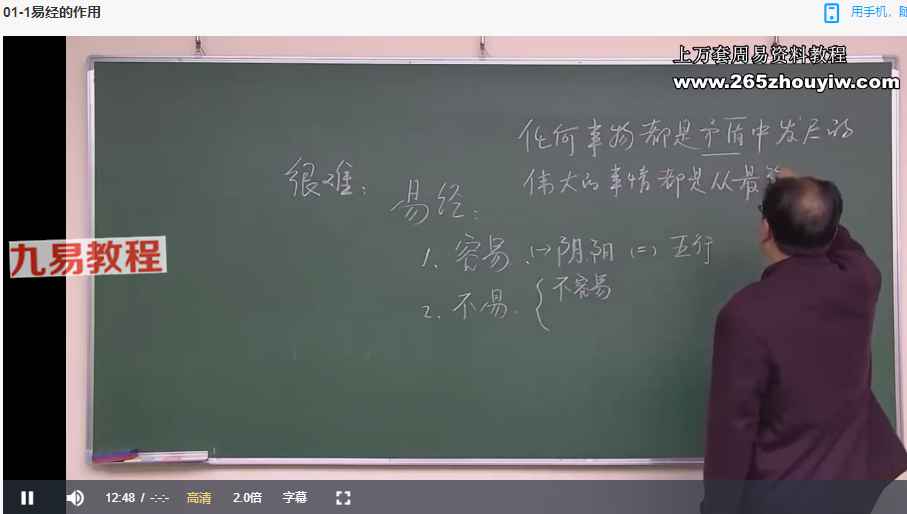 01-1易经的作用
用手机，
上万套周易资料教程
www.265zhouyiw.com
任何事物都是矛盾中发展的
伟大的事情都是从最
很难：
易经：
九易教程
1. 容易 (一)阴阳 (二) 五行
2. 不易. { 不容易
12:48 / -:-:- 高清 2.0倍 字幕